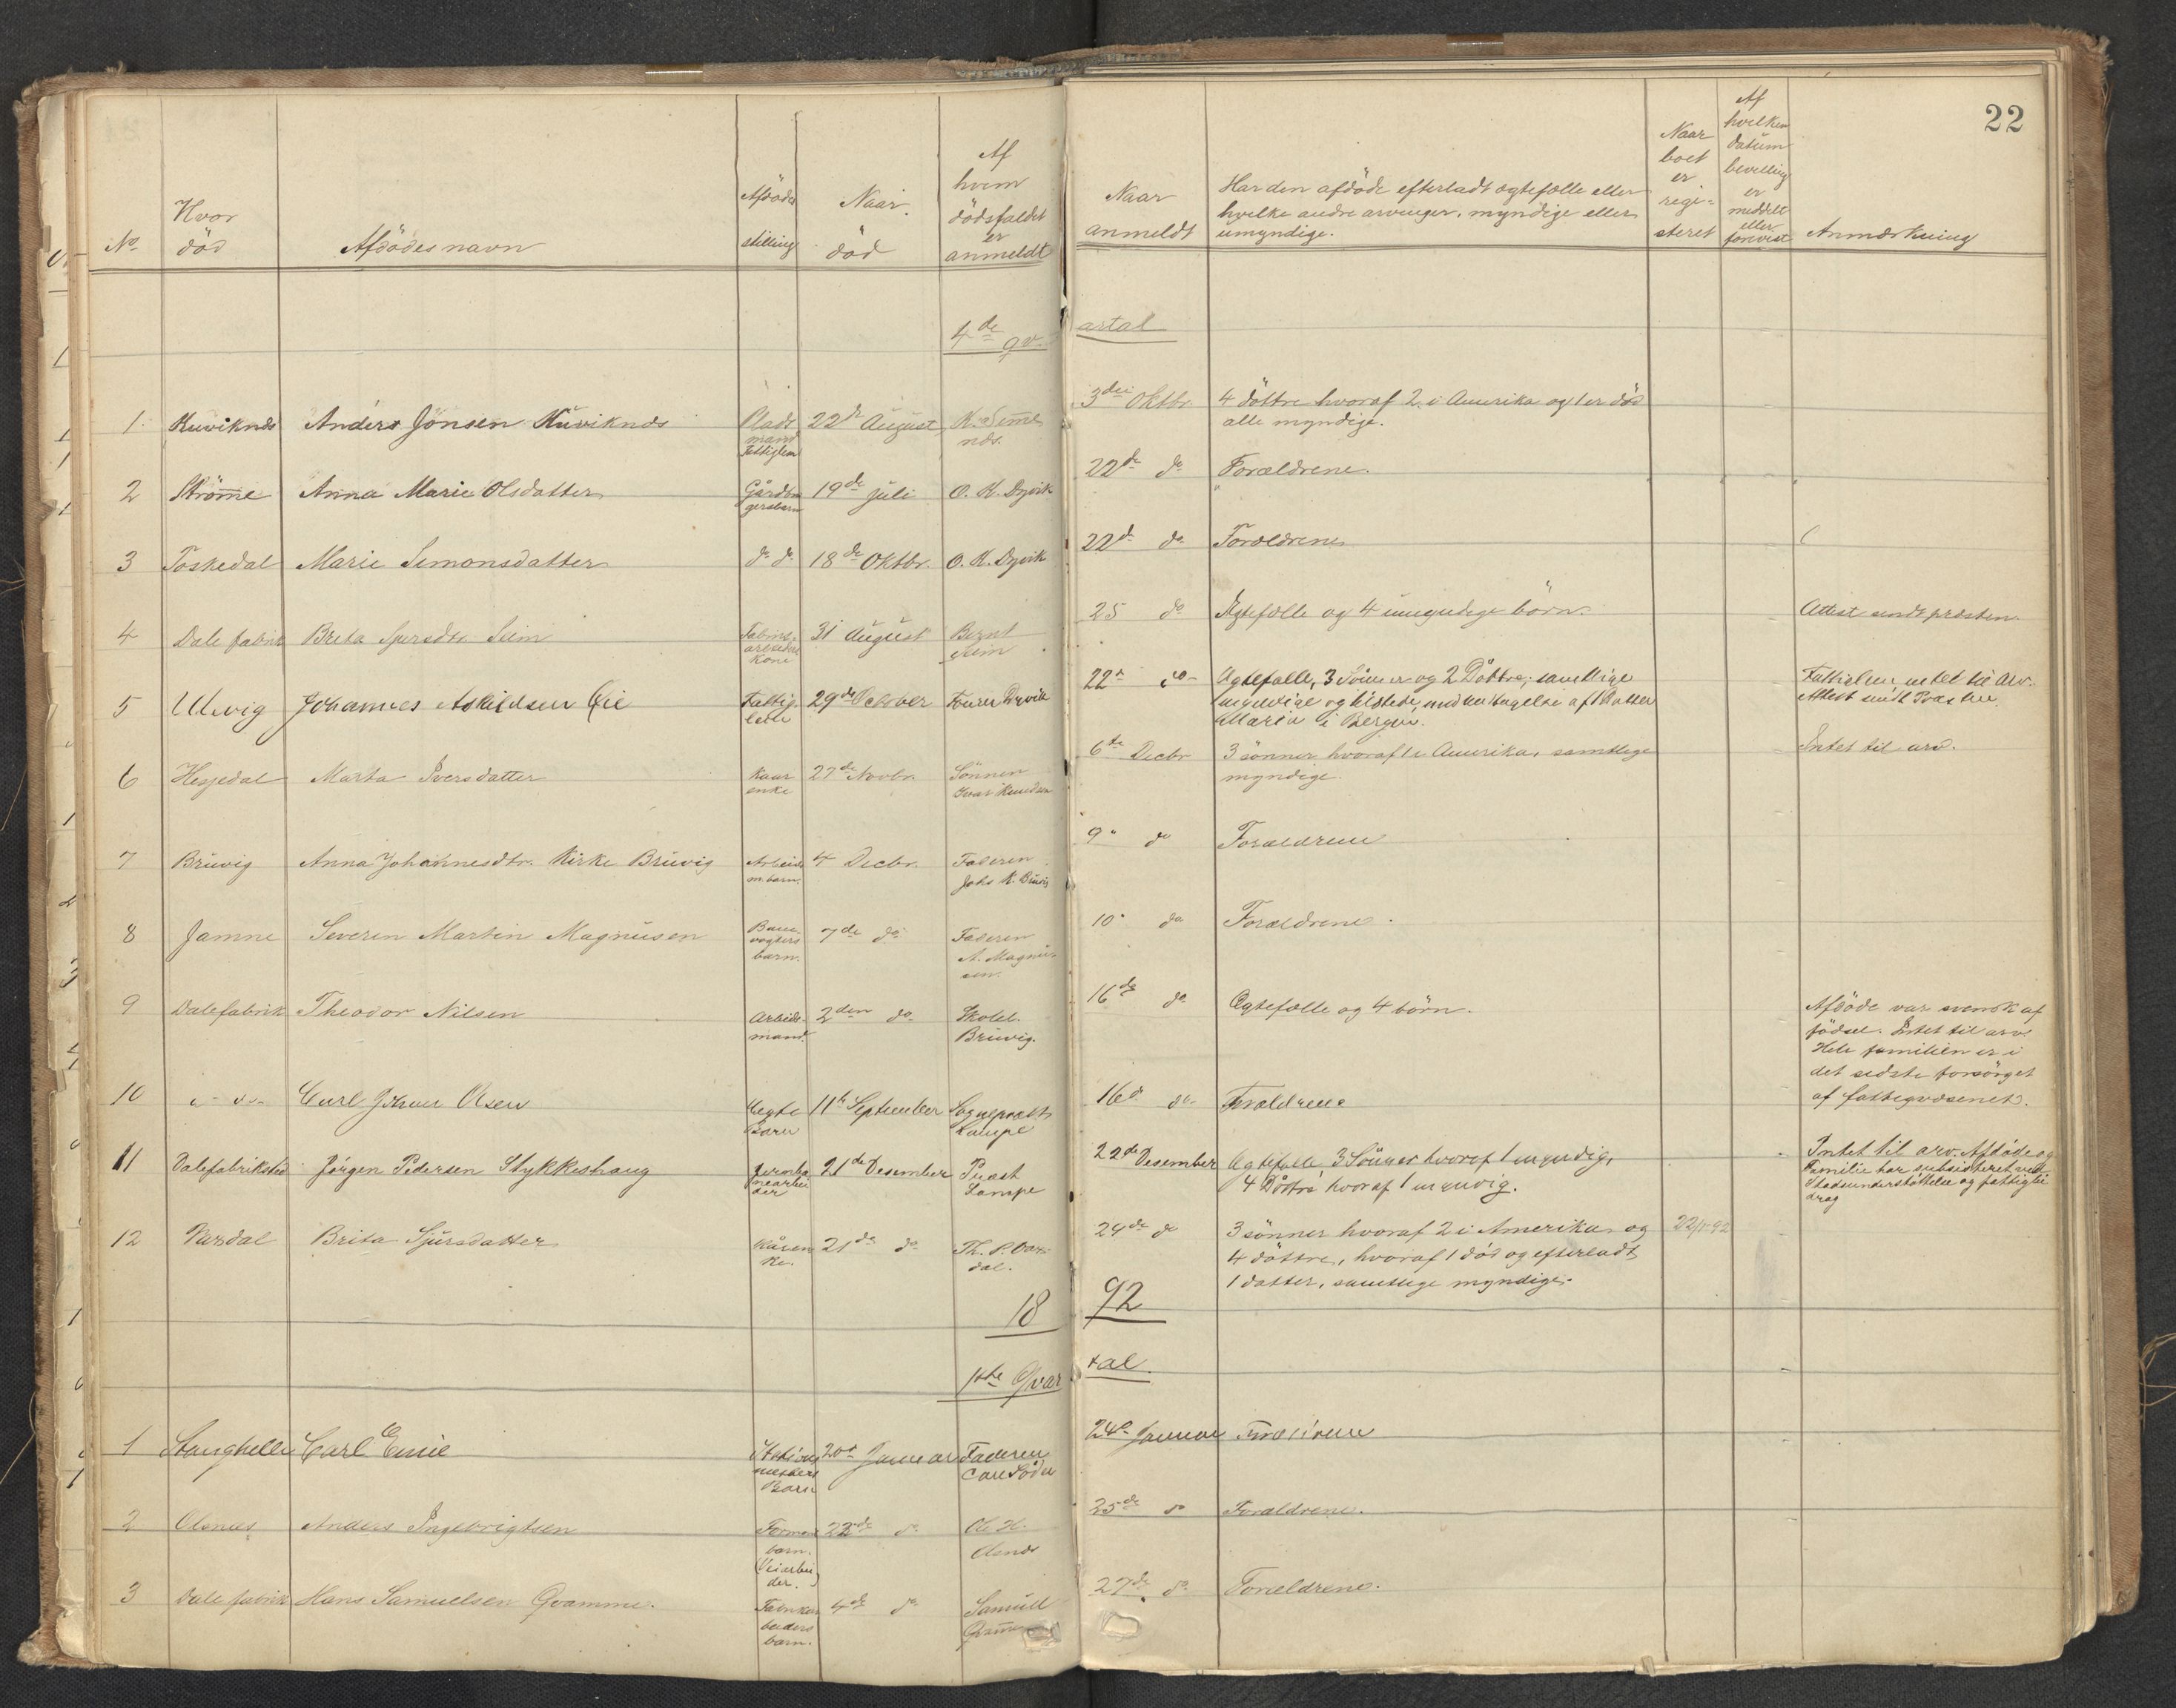 22
No.
Hvor
död
Afdödes navn
Afdödes
stilling
Naar
död
Af
hvem
dödsfaldet
er
anmeldt
Naar
anmeldt
Har den afdöde efterladt ægtefælle eller
hvilke andre arvinger, myndige eller
umyndige.
Naar
boet
er
regi-
steret
Af
hvilken
datum
bevilling
er
meddelt
eller
forevist
Anmærkning
4de qv-
artal
1. Anders Jonsen
Plads
mand
Fattiglem
22de August
3die Oktbr.
4 döttre hvoraf 2 i Amerika og 1 er död
alle myndige.
2 Strömme Anna Marie Olsdatter
19de juli O. K. Dyvik
22de do Forældrene.
3 Toskedal Marie Simonsdatter do do 18de Oktbr. O. K. Dyvik
22d do Forældrene
4 Dale fabrik Brita Sjursdtr. Seim
kone
31 August
Bernt
Seim
25 do Ægtefælle og 4 umyndige börn.
Attest sendt præsten.
5 Johannes
Fattig-
29de October
22d
Ægtefælle, 3 Sönner og 2 Döttre; samtlige
Maria i Bergen.
6 Hesjedal Marta Iversdatter
Kaar
enke
27de Novbr.
Sönnen
Ivar Knudsen
6te Decbr
3 sönner hvoraf 1 i Amerika, samtlige
myndige.
Intet til arv.
7 Bruvig Anna Johannesdtr. Kirke Bruvig
Arbeids
m. barn.
4 Decbr.
Faderen
Johs K. Bruvig
9 do Forældrene
8 Jamne Severin Martin Magnusen
Bane
vogters
barn.
7de do
Faderen
A. Magnu-
sen.
10 do Forældrene.
9 Dalefabrik Theodor Nilsen
Arbeids-
mand.
2den do
Skolel.
Bruvig.
16de do Ægtefælle og 4 börn.
Afdöde var svensk af
födsel. Intet til arv.
Hele familien er i
det sidste forsörget
af fattigvæsenet.
10 Carl Johan Olsen
Ægte
Barn
11te September
Sognepræst
Lampe
16d do Forældrene
11 Jørgen Pedersen Stykkeshaug
Jernba
nearbei
der
21de Desember
Provst
Lampe
22de Desember
Ægtefælle, 3 Sönner hvoraf 1 myndig,
4 Döttre hvoraf 1 myndig.
Intet til arv. Afdöde og
Familie har subsisteret ved
og fattigbi
drag
12 Vardal Brita Sjursdatter
Kåren
ke.
21de do
Th. P. Var-
dal.
24de do
3 sönner hvoraf 2 i Amerika og
4 döttre, hvoraf 1 död og efterladt
1 datter, samtlige myndige.
18
92
1ste Qvar
tal
1 Stanghelle Carl Emil
Stations
mesters
Barn
20de Januar
Faderen
24de Januar Forældrene
2 Olsnæs Anders Ingebrigtsen
barn.
(Veiarbei
der.)
22de do
Ole H.
Olsnæs
25de do Forældrene.
3 Dale fabrik Hans Samuelsen Qvamme.
Fabrikar
beiders
barn.
4de do
Samuel
27de do Forældrene.